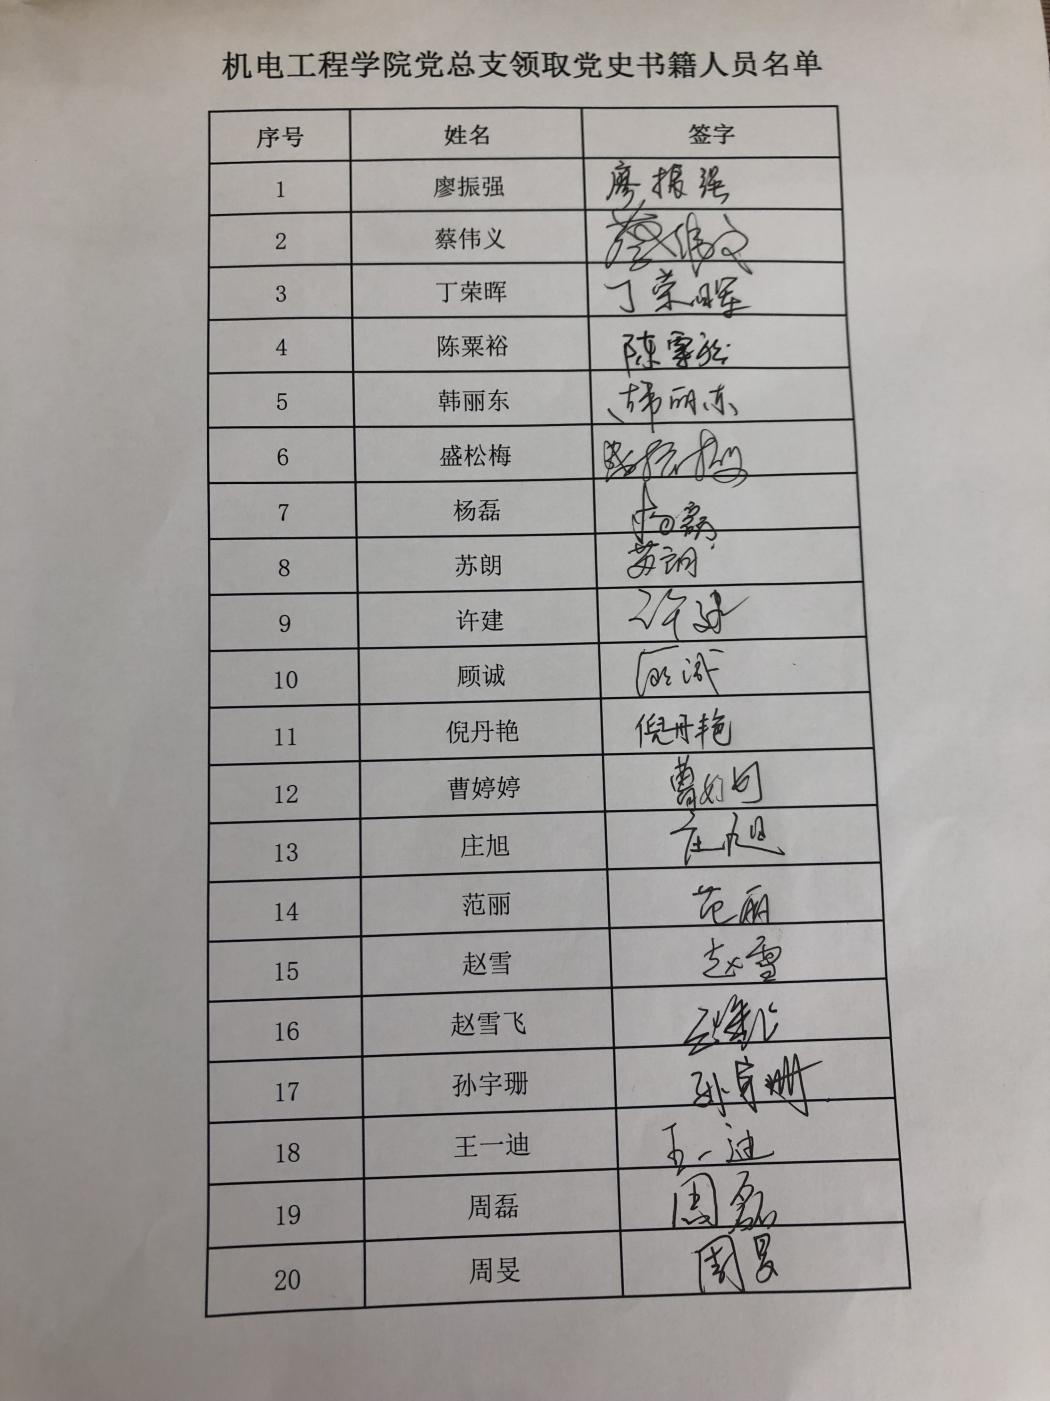 机电工程学院党总支领取党史书籍人员名单
序号 姓名 签字
1 廖振强 廖振强
2 蔡伟义 蔡伟义
3 丁荣晖 丁荣晖
4 陈粟裕 陈粟裕
5 韩丽东 韩丽东
6 盛松梅 盛松梅
7 杨磊 杨磊
8 苏朗 苏朗
9 许建 许建
10 顾诚 顾诚
11 倪丹艳 倪丹艳
12 曹婷婷 曹婷婷
13 庄旭 庄旭
14 范丽 范丽
15 赵雪 赵雪
16 赵雪飞
17 孙宇珊 孙宇珊
18 王一迪 王一迪
19 周磊 周磊
20 周旻 周旻